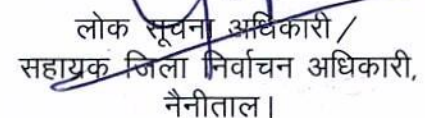 लोक सूचना अधिकारी /
सहायक जिला निर्वाचन अधिकारी,
नैनीताल।